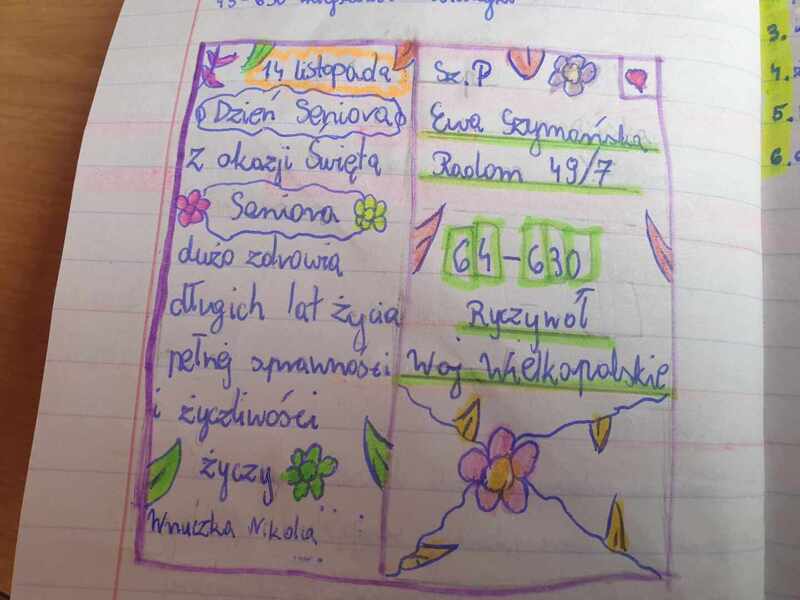 14 listopada
Dzień Seniora
z okazji Święta
Seniora
dużo zdrowia
długich lat życia
pełnej sprawności
i życzliwości
życzy
Wnuczka Nikola
Sz.P
Ewa Szymańska
Radom 49/7
64-630
Ryczywół
Woj Wielkopolskie
3.
4.
5.
6.